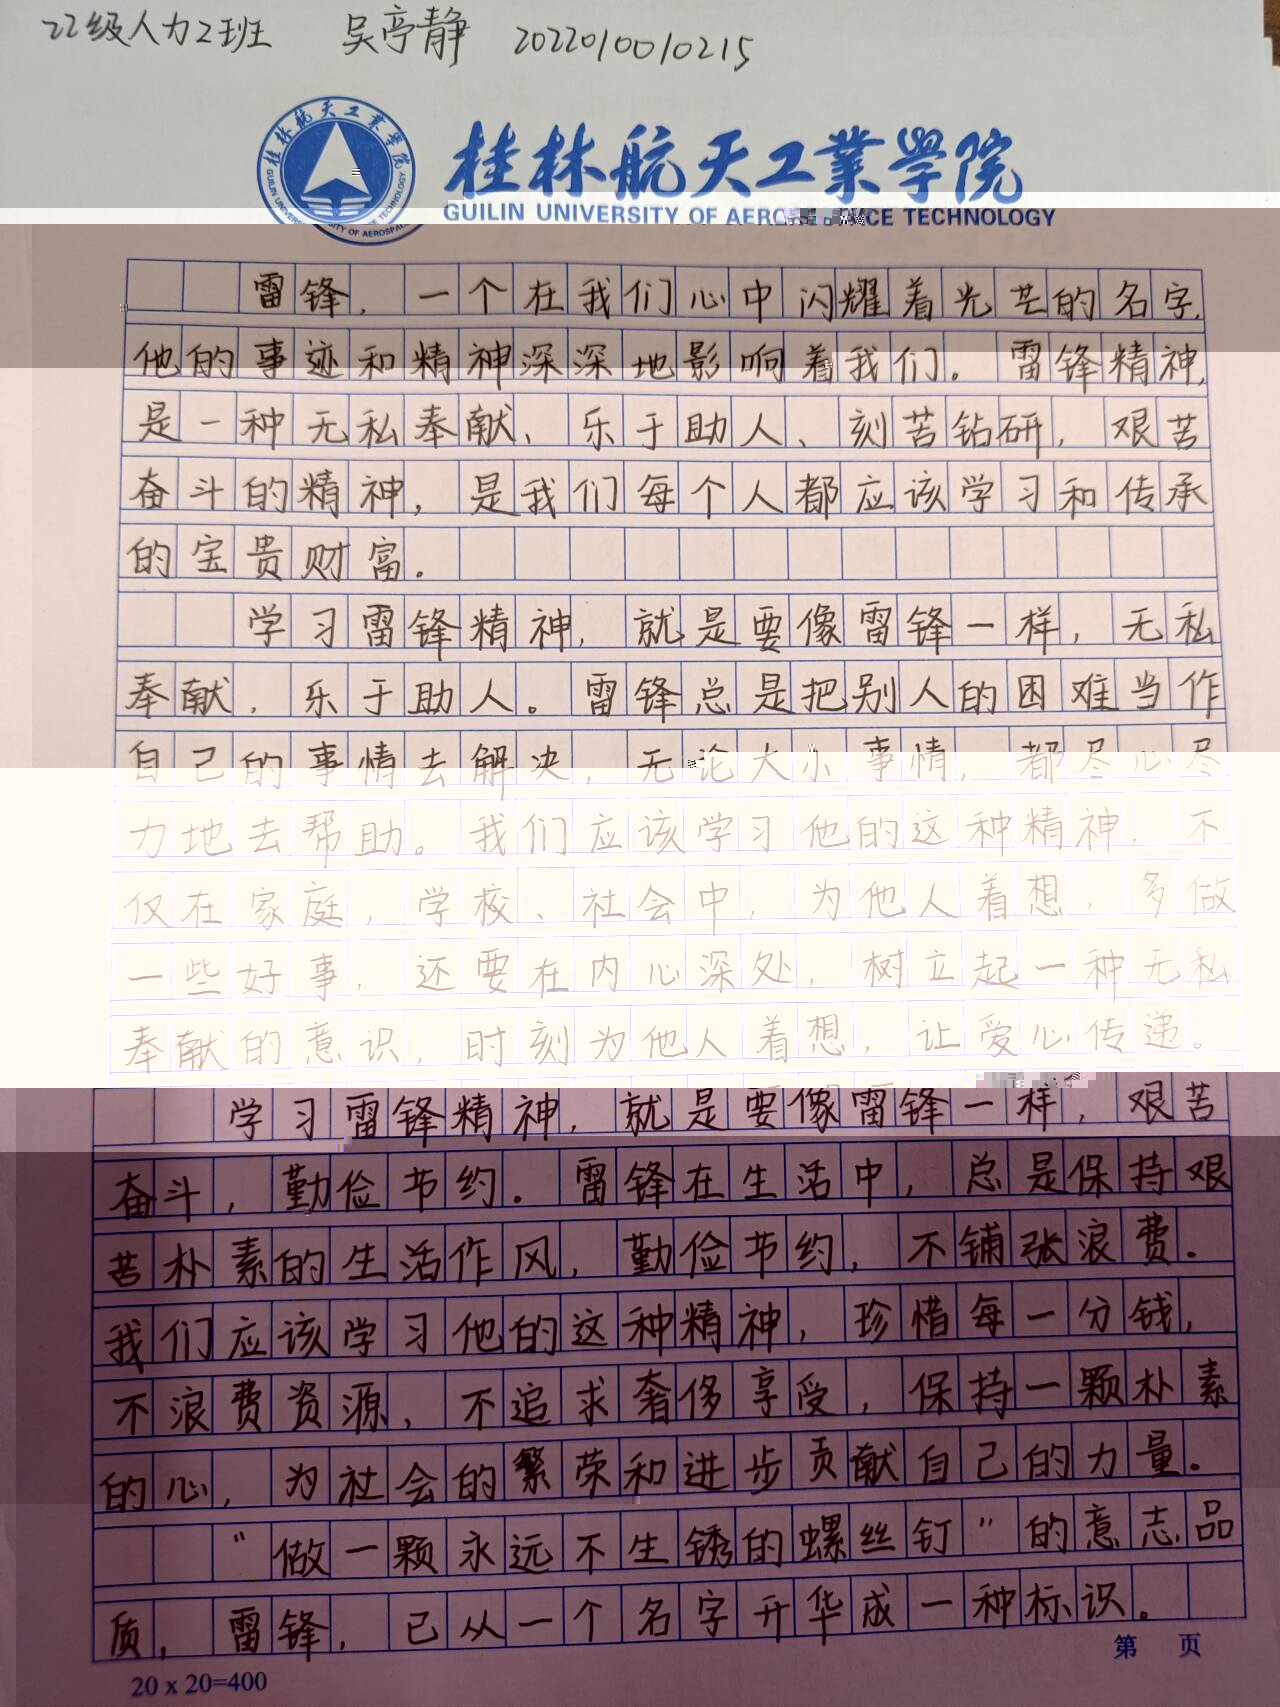 22级人力2班 吴亭静 2022010010215
桂林航天工業學院
GUILIN UNIVERSITY OF AEROSPACE TECHNOLOGY
雷锋，一个在我们心中闪耀着光芒的名字，
他的事迹和精神深深地影响着我们。雷锋精神，
是一种无私奉献、乐于助人、刻苦钻研，艰苦
奋斗的精神，是我们每个人都应该学习和传承
的宝贵财富。
学习雷锋精神，就是要像雷锋一样，无私
奉献，乐于助人。雷锋总是把别人的困难当作
自己的事情去解决，无论大小事情，都尽心尽
力地去帮助。我们应该学习他的这种精神，不
仅在家庭，学校、社会中，为他人着想，多做
一些好事，还要在内心深处，树立起一种无私
奉献的意识，时刻为他人着想，让爱心传递。
学习雷锋精神，就是要像雷锋一样，艰苦
奋斗，勤俭节约。雷锋在生活中，总是保持艰
苦朴素的生活作风，勤俭节约，不铺张浪费。
我们应该学习他的这种精神，珍惜每一分钱，
不浪费资源，不追求奢侈享受，保持一颗朴素
的心，为社会的繁荣和进步贡献自己的力量。
“做一颗永远不生锈的螺丝钉”的意志品
质，雷锋，已从一个名字升华成一种标识。
第 页
20 x 20=400